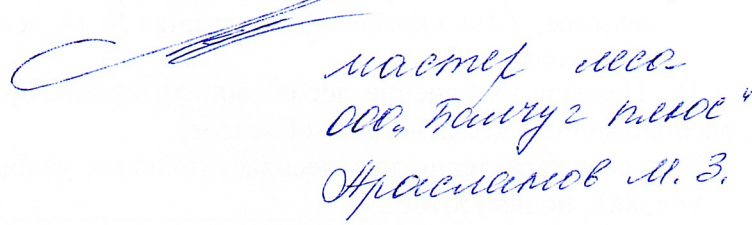 мастер леса
ООО „Балчуг плюс“
Арасланов М. З.